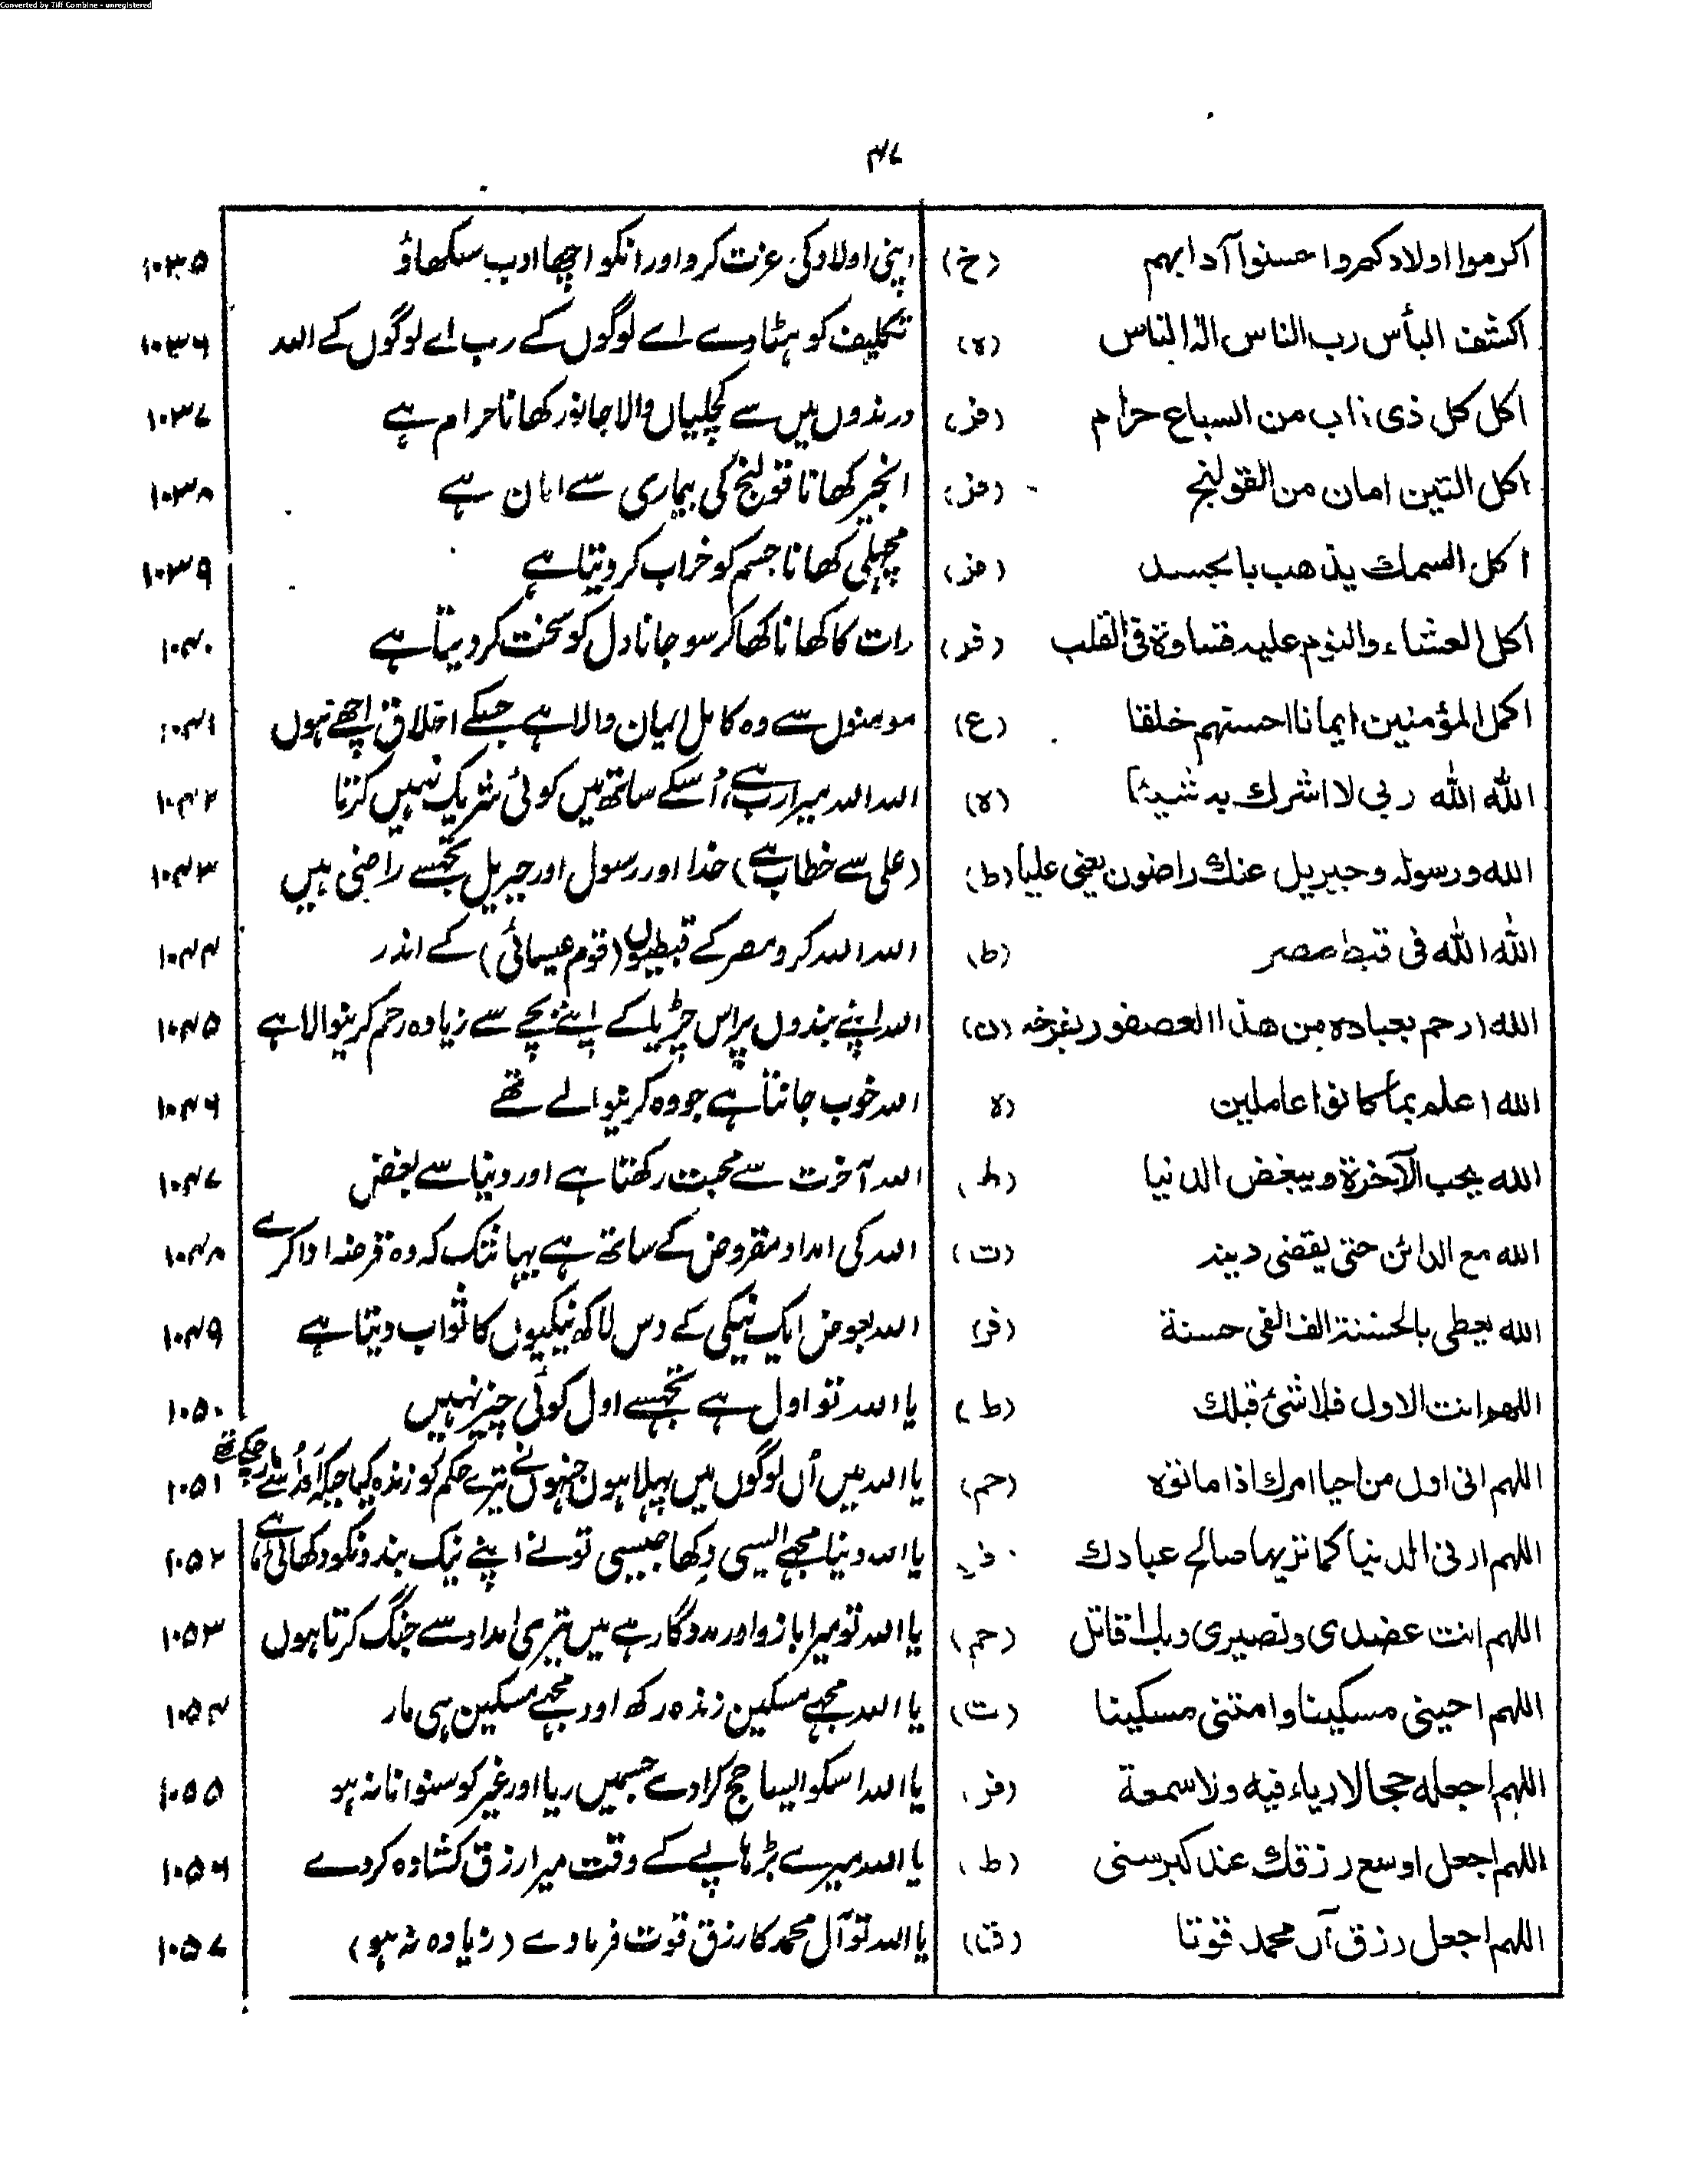 Converted by Tiff Combine - unregistered
۴۷
اکرموا اولادکم واحسنوا آدابهم (خ) اپنی اولاد کی عزت کرو اور انکو اچھا ادب سکھاؤ ۱۰۳۵
اکشف البأس رب الناس اله الناس (ه) تکلیف کو ہٹا دے اے لوگوں کے رب اے لوگوں کے اللہ ۱۰۳۶
اکل کل ذی ناب من السباع حرام (فر) درندوں میں سے کچلیاں والا جانور کھانا حرام ہے ۱۰۳۷
اکل التین امان من القولنج (فر) انجیر کھانا قولنج کی بیماری سے امان ہے ۱۰۳۸
اکل السمك یذهب بالجسد (فر) مچھلی کھانا جسم کو خراب کر دیتا ہے ۱۰۳۹
اکل العشاء والنوم علیه قساوة فی القلب (فر) رات کا کھانا کھا کر سو جانا دل کو سخت کر دیتا ہے ۱۰۴۰
اکمل المؤمنین ایمانا احسنهم خلقا (ع) مومنوں سے وہ کامل ایمان والا ہے جسکے اخلاق اچھے ہوں ۱۰۴۱
الله الله ربی لا اشرك به شیئا (ه) اللہ اللہ میرا رب ہے، اُسکے ساتھ میں کوئی شریک نہیں کرتا ۱۰۴۲
الله ورسوله وجبریل عنك راضون یعنی علیا (ط) (علی سے خطاب ہے) خدا اور رسول اور جبریل تجھسے راضی ہیں ۱۰۴۳
الله الله فی قبط مصر (ط) اللہ اللہ کرو مصر کے قبطیوں (قوم عیسائی) کے اندر ۱۰۴۴
الله ارحم بعباده من هذا العصفور بفرخه (ن) اللہ اپنے بندوں پر اس چڑیا کے اپنے بچے سے زیادہ رحم کرنیوالا ہے ۱۰۴۵
الله اعلم بما کانوا عاملین (ه اللہ خوب جانتا ہے جو وہ کرنیوالے تھے ۱۰۴۶
الله یحب الآخرة ویبغض الدنیا (ط) اللہ آخرت سے محبت رکھتا ہے اور دنیا سے بغض ۱۰۴۷
الله مع الدائن حتی یقضی دینه (ت) اللہ کی امداد مقروض کے ساتھ ہے یہانتک کہ وہ قرضہ ادا کرے ۱۰۴۸
الله یعطی بالحسنة الف الفی حسنة (فر) اللہ بعوض ایک نیکی کے دس لاکھ نیکیوں کا ثواب دیتا ہے ۱۰۴۹
اللهم انت الاول فلا شئ قبلك (ط) یا اللہ تو اول ہے تجھسے اول کوئی چیز نہیں ۱۰۵۰
اللهم انی اول من احیا امرك اذا ماتوه (حم) یا اللہ میں اُن لوگوں میں پہلا ہوں جنہوں نے تیرے حکم کو زندہ کیا جبکہ چکے تھے ۱۰۵۱
اللهم ارنی الدنیا کما تریها صالح عبادك یا اللہ دنیا مجھے ایسی دِکھا جیسی تونے اپنے نیک بندونکو دکھائی ہے ۱۰۵۲
اللهم انت عضدی ونصیری وبك اقاتل (حم) یا اللہ تو میرا بازو اور مددگار ہے میں تیری امداد سے جنگ کرتا ہوں ۱۰۵۳
اللهم احینی مسکینا وامتنی مسکینا (ت) یا اللہ مجھے مسکین زندہ رکھ اور مجھے مسکین ہی مار ۱۰۵۴
اللهم اجعله حجا لا ریاء فیه ولا سمعة (فر) یا اللہ اسکو ایسا حج کرا دے جسمیں ریا اور غیر کو سنوانا نہ ہو ۱۰۵۵
اللهم اجعل اوسع رزقك عند کبر سنی (ط) یا اللہ میرے بڑھاپے کے وقت میرا رزق کشادہ کر دے ۱۰۵۶
اللهم اجعل رزق آل محمد قوتا (ق) یا اللہ تو آل محمد کا رزق قوت فرما دے (زیادہ نہ ہو) ۱۰۵۷